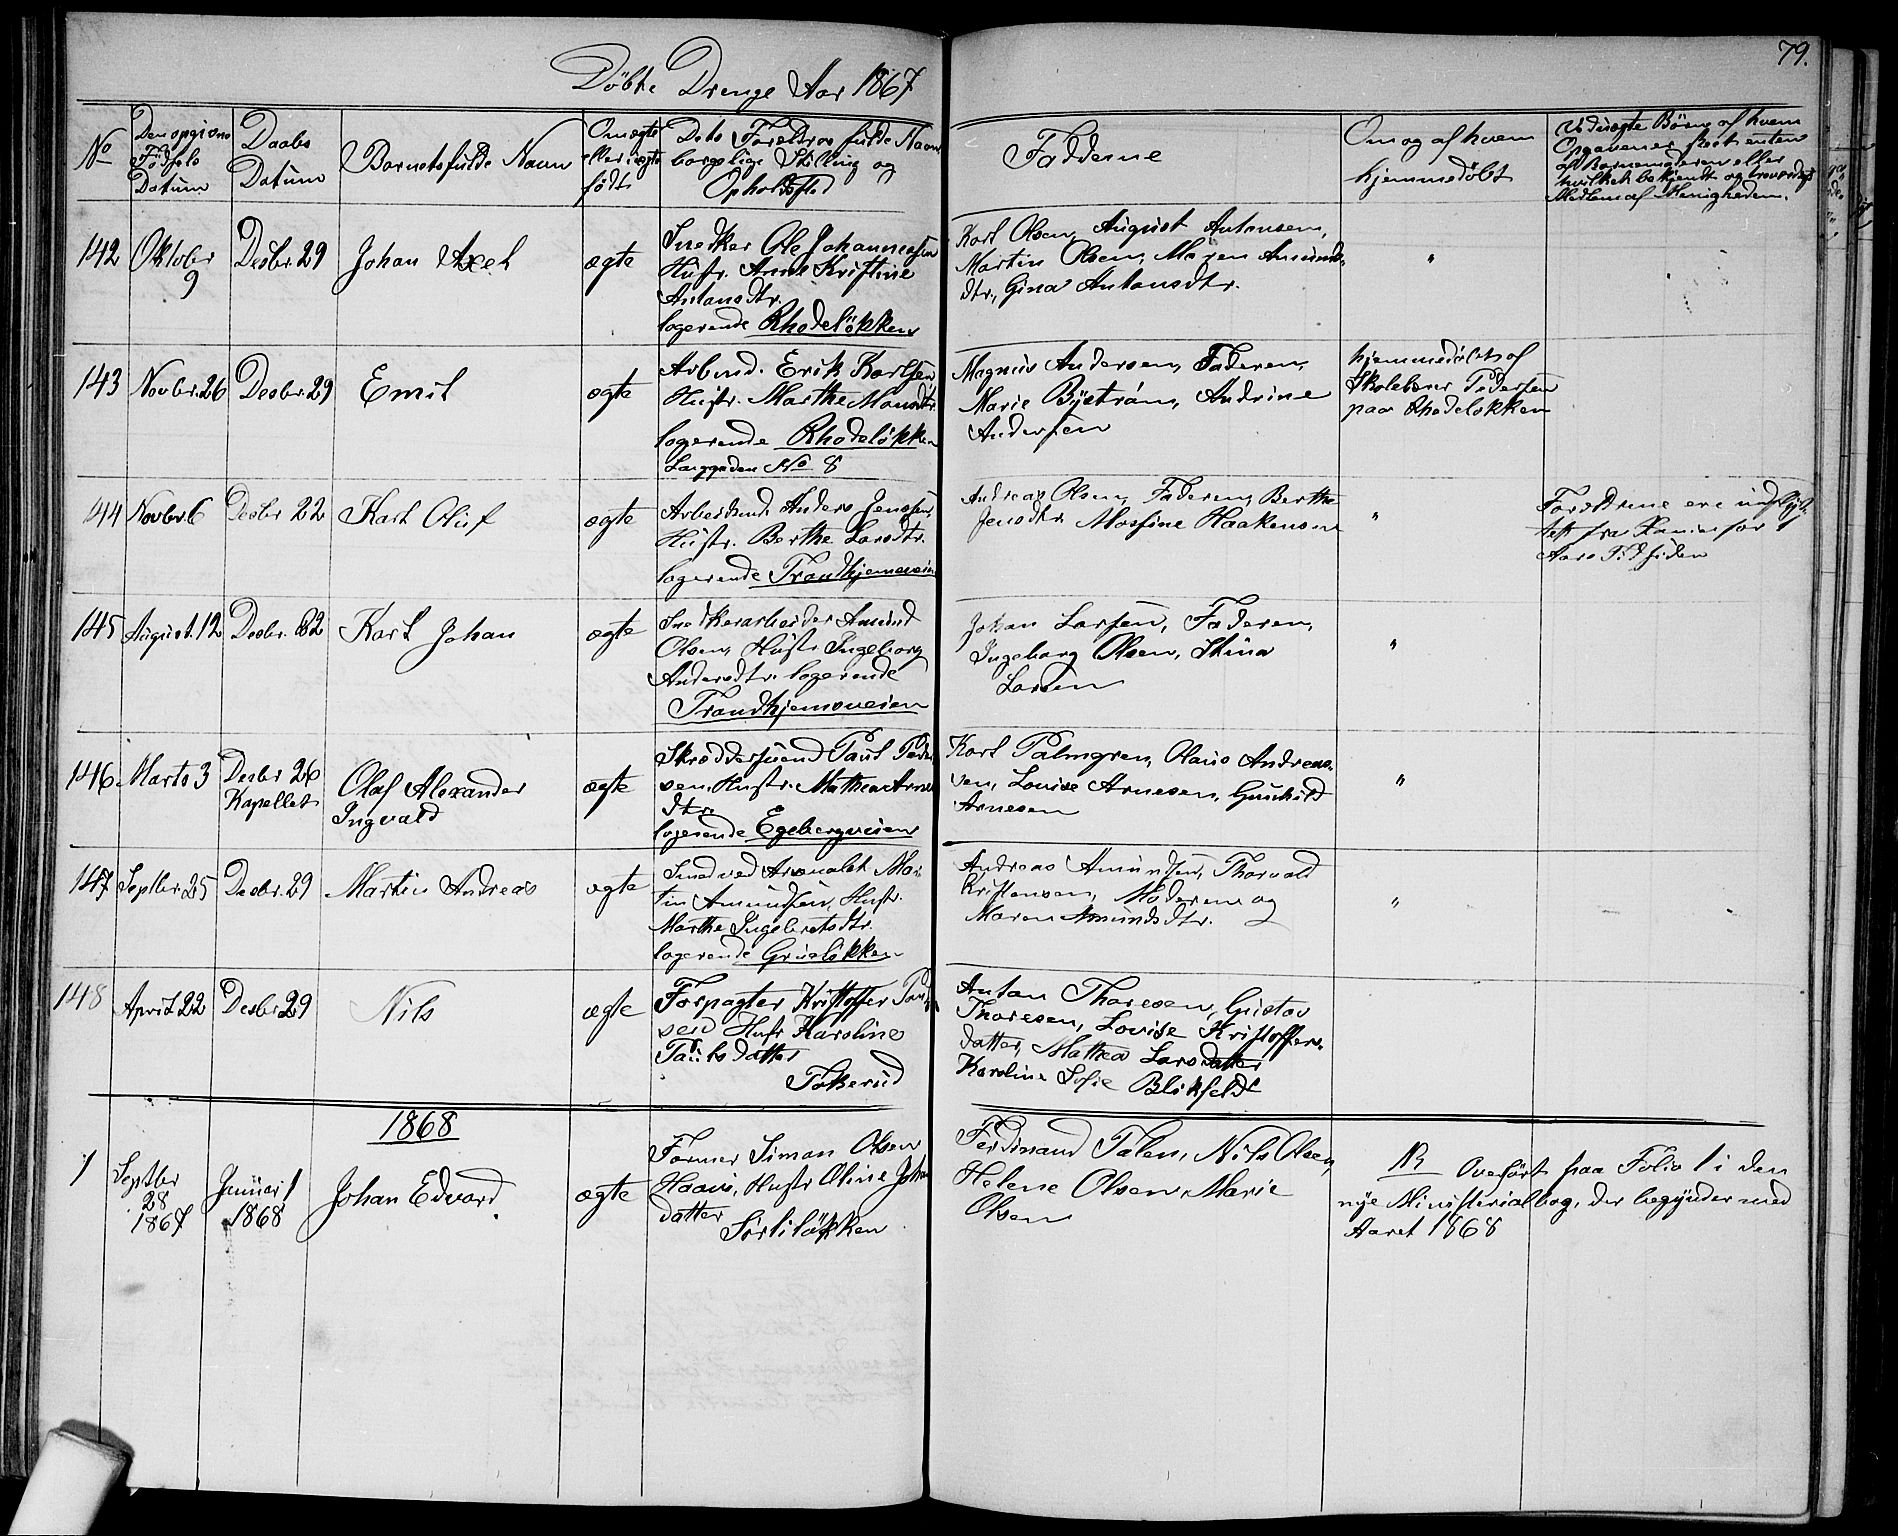 79.
Döbte Drenge Aar 1867
No
Den opgivne
Födsels
Datum
Daabs
Datum
Barnets fulde Navn
Om ægte
eller uægte
födt
Dets Forældres fulde Navn
borgelige Stilling og
Opholdssted
Fadderne
Om og af hvem
hjemmedöbt
Ved uægte Börn, af hvem
Opgaven er skeet enten
af Barnemoderen eller
hvilket bekjendt og troværdigt
Medlem af Menigheden.
142 Oktober
9
Desbr. 29
Johan Axel
ægte
Snedker Ole Johannesen
Hustr. Anne Kristine
Antonsdtr.
logerende Rhodelökken
Karl Olsen, August Antonsen,
Martin Olsen, Maren Amunds-
dtr., Gina Antonsdtr.
"
143 Novbr. 26 Desbr. 29 Emil
ægte
Arbmd. Erik Karlsen
Hustr. Marthe Monsdtr.
logerende Rhodelökken
Langgaden No 8
Magnus Andersen, Faderen,
Marie Byström, Andrine
Andersen
hjemmedöbt af
Skolelærer Pedersen
paa Rhodelökken
144 Novbr 6 Desbr 22 Karl Oluf
ægte
Arbeidsmd. Anders Jenssen
Hustr. Berthe Larsdtr.
logerende Trondhjemsveien
Andreas Olsen, Faderen, Berthe
Jensdtr. Mossine Haakensen
"
Forældrene ere indflyt-
tet fra for 1
Aars Tid siden
145 August. 12 Desbr. 22 Karl Johan
ægte
Snedkerarbeider Amund
Olsen, Hustr. Ingeborg
Andersdtr. logerende
Trondhjemsveien
Johan Larsen, Faderen,
Ingeborg Olsen, Stina
Larsen
"
146 Marts 3 Desbr 26
Kapellet
Olaf Alexander
Ingvald
ægte
Skræddersvend Paul Peder-
sen, Hustr. Mathea Arnes
dtr.
logerende Egebergveien
Karl Palmgren, Olaus Andreas-
sen, Lovise Arnesen, Gunhild
Arnesen
"
147 Septbr. 25 Desbr. 29 Martin Andreas
ægte
Smed ved Arsenalet Mar-
tin Amundsen, Hustr.
Marthe Ingebretsdtr.
logerende Grünelökken
Andreas Amundsen, Thorvald
Kristensen, Moderen og
Maren Amundsdtr.
"
148 April 22 Desbr 29 Nils
ægte
Forpagter Kristoffer Paul-
sen Hustr Karoline
Paulsdatter
Tokerud
Anton Thoresen, Gustav
Thoresen, Lovise Kristoffers-
datter, Mathea Larsdatter
Karoline Sofie Blikfeldt
1868
1 Septbr
28
1867
Januar 1
1868
Johan Edvard
ægte
Former Simon Olsen
Haavi, Hustr Oline Johns
datter
Sorliløkken
Ferdinand Talen, Nils Olsen,
Helene Olsen, Marie
Olsen
NB Overfört paa Folio 1 i den
nye Ministerialbog, der begynder med
Aaret 1868